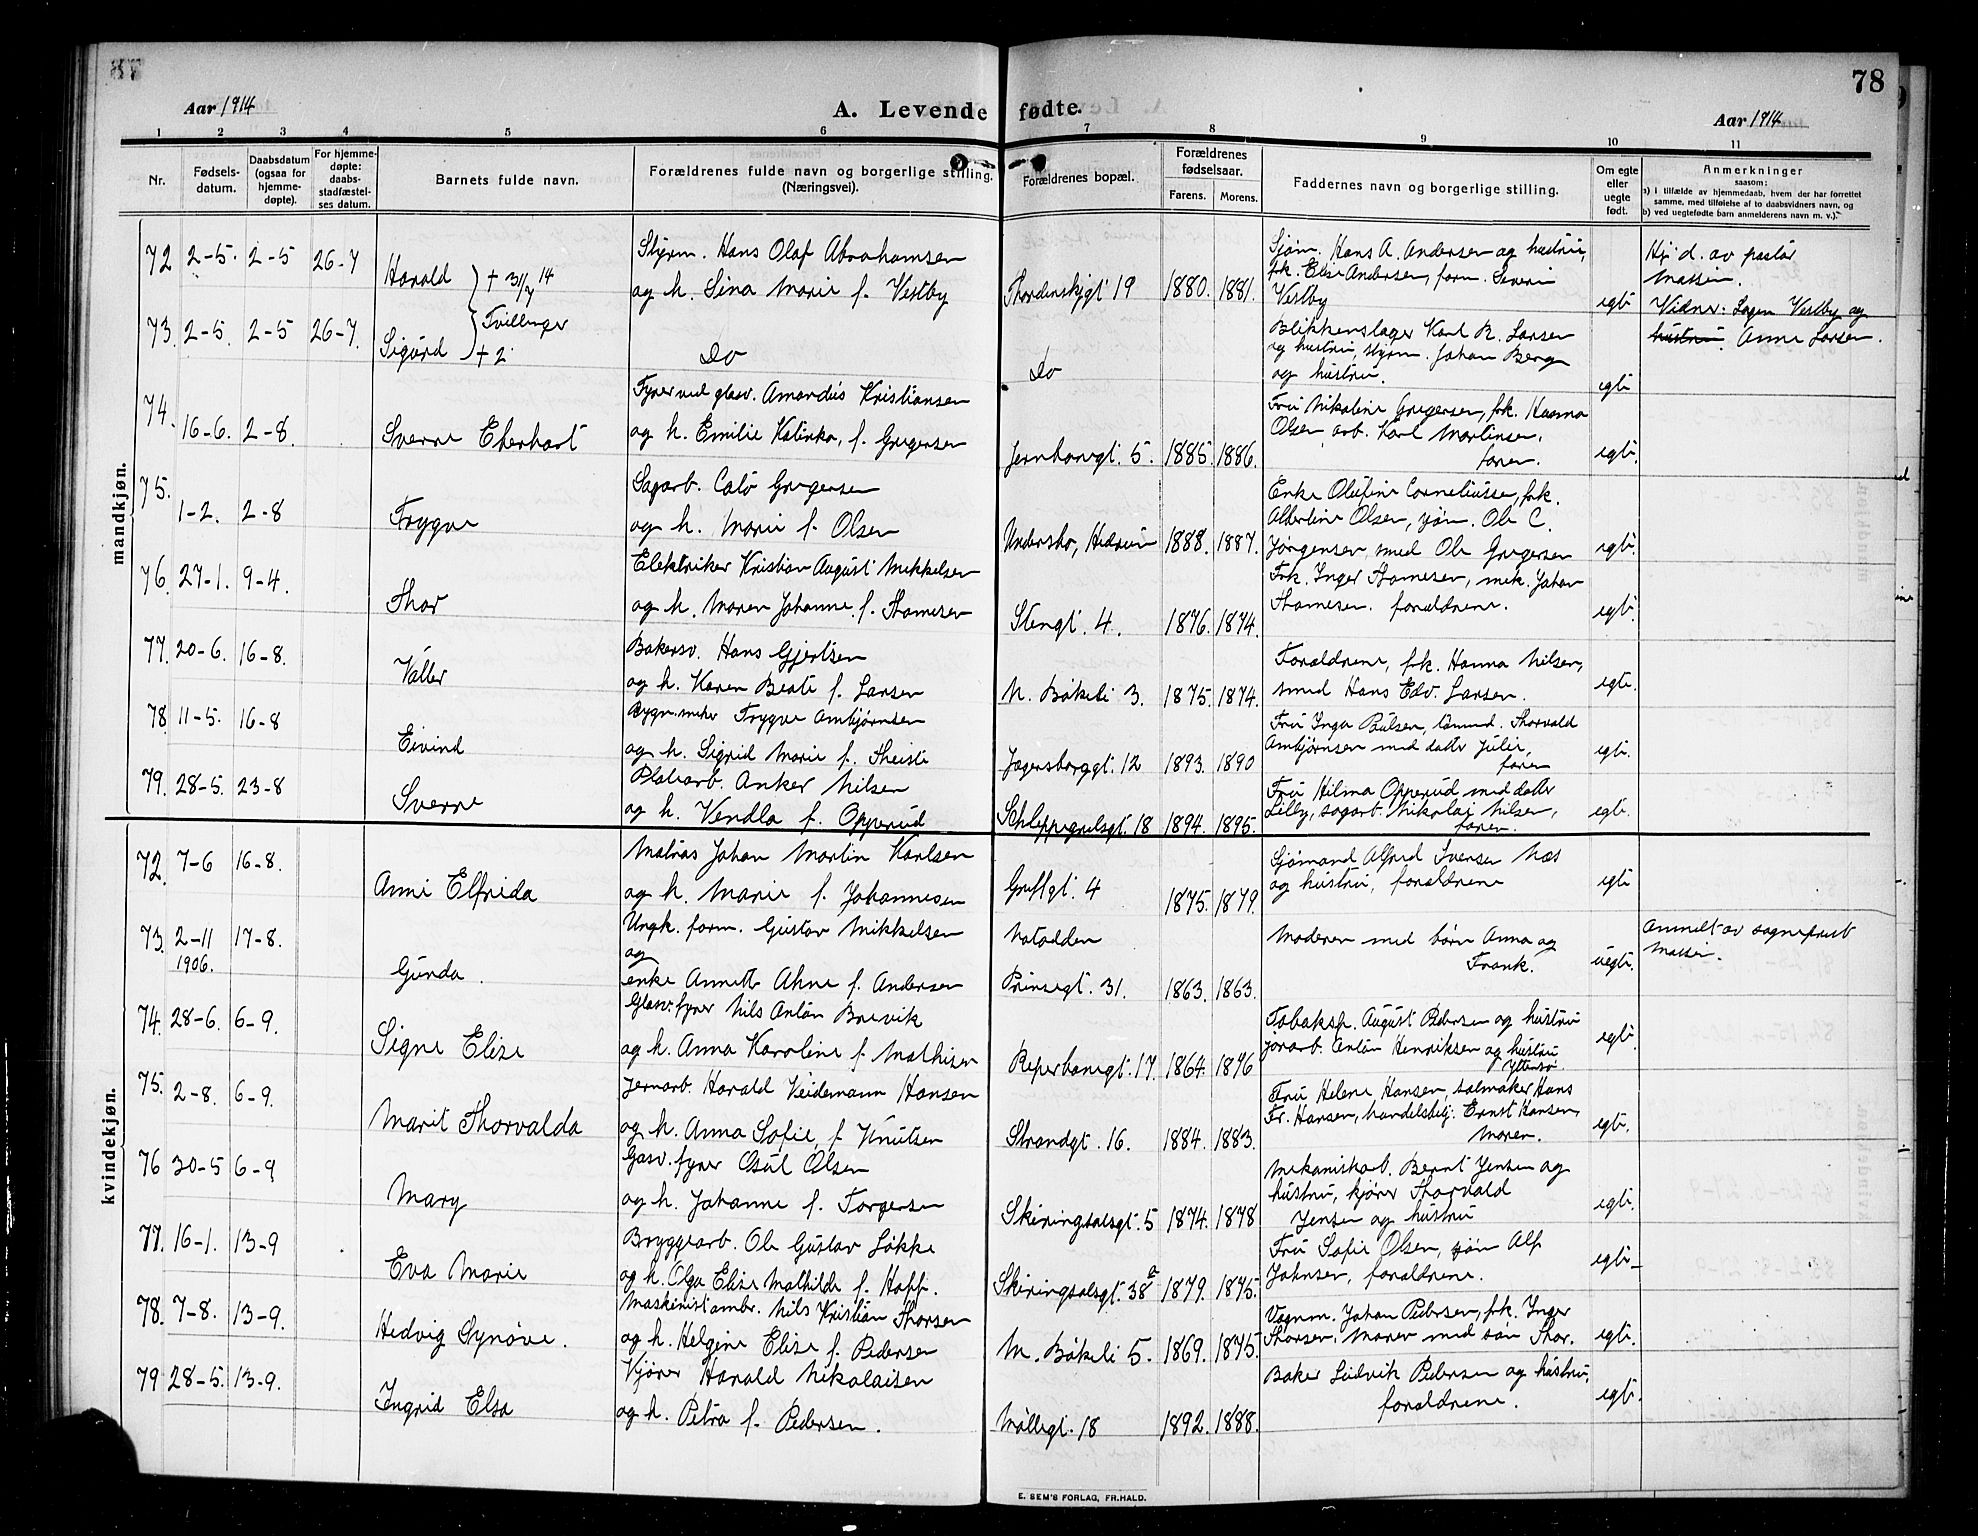 78
Aar 1914
A. Levende fødte.
Aar 1914
1 2 3 4 5 6 7 8 9 10 11
Nr.
Fødsels-
datum.
Daabsdatum
(ogsaa for
hjemme-
døpte).
For hjemme-
døpte:
daabs-
stadfæstel-
ses datum.
Barnets fulde navn.
Forældrenes fulde navn og borgerlige stilling.
(Næringsvei).
Forældrenes bopæl.
Forældrenes
fødselsaar.
Farens. Morens.
Faddernes navn og borgerlige stilling.
Om egte
eller
uegte
født.
Anmerkninger
saasom:
a) i tilfælde av hjemmedaab, hvem der har forrettet
samme, med tilføielse af to daabsvidners navn, og
b) ved uegtefødte barn anmelderens navn m. v.).
mandkjøn.
72 2-5. 2-5 26-7
Harald + 31/7 14
Styrm. Hans Olaf Abrahamsen
og h. Lina Marie f. Vestby
Thordenskjgt 19 1880. 1881.
Sjøm. Hans A. Andersen og hustru,
frk. Elise Andersen, form. Severin
Vestby
egte
Hj. d. av pastor
Massin.
Vidner: Vestby og
hustru. Anna Larsen.
73. 2-5. 2-5 26-7.
Sigurd Tvillinger + 2
Do
Do
Blikkenslager Karl R. Larsen
og hustru, styrm. Johan Berg
og hustru.
egte
74. 16-6. 2-8.
Sverre Eberhart
Fyrer ved glasv. Amandus Kristiansen
og h. Emilie Katinka, f. Gregersen
Jernbanegt. 5. 1885. 1886.
Fru Nikoline Gregersen, frk.
Olsen arb. Karl Martinsen,
faren.
egte.
75. 1-2. 2-8
Trygve
Sagarb. Gregersen
og h. Marie f. Olsen
Undersbo, Hedrum 1888. 1887.
Enke Olufine Corneliussen, frk.
Albertine Olsen, sjøm. Ole C.
Jørgensen, smed Ole Gregersen
egte.
76. 27-1. 9-4.
Thor
Elektriker Kristian August Mikkelsen
og h. Maren Johanne f. Thomesen
Stengt. 4. 1876. 1874.
Frk. Inger Thomesen, mek. Johan
Thomesen. forældrene.
egte.
77. 20-6. 16-8.
Valler
Bakersv. Hans Gjertsen
og h. Karen Beate f. Larsen
N. Bøkeli 3. 1875. 1874.
Forældrene, frk. Hanna Nilsen,
smed Hans Edv. Larsen.
egte.
78 11-5. 16-8
Eivind
Trygve Ambjørnsen
og h. Sigrid Marie f. Theiste
Jegersborggt. 12 1893. 1890
Fru Inga Paulsen, Thorvald
Ambjørnsen med datter Julie,
faren
egte.
79. 28-5. 23-8
Sverre
Platearb. Anker Nilsen
og h. Vendla f. Opperud
Schleppegrelsgt. 18 1894. 1895.
Fru Hilma Opperud med datter
Lilly, sagarb. Nikolai Nilsen,
faren.
egte.
kvindekjøn.
72. 7-6 16-8.
Anni Elfrida
Matros Johan Martin Karlsen
og h. Marie f. Johannesen
Grevlgt. 4 1875. 1879.
Sjømand Alfred Iversen Næs
og hustru, forældrene
egte
73. 2-11
1906. 17-8.
Gunda.
Ungk. form. Gustav Mikkelsen
og
enke Annette Ahne f. Andersen
Notodden
Prinsegt. 31. 1863. 1863.
Moderen med børn Anna og
Frank.
uegte.
Anmeldt av sogneprest
Massin.
74. 28-6. 6-9.
Signe Elise
Glasv.fyrer Nils Anton Brevik
og h. Anna Karoline f. Mathisen
Reperbanegt. 17. 1864. 1876
Tobaksf. August Pedersen og hustru
jernarb. Anton Henriksen og hustru
Yttersø.
egte.
75. 2-8. 6-9.
Marit Thorvalda
Jernarb. Harald Veidemann Hansen
og h. Anna Sofie, f. Knutsen
Strandgt. 16. 1884. 1883.
Fru Helene Hansen, salmaker Hans
Fr. Hansen, handelsbetj. Ernst Hansen,
moren.
egte.
76 30-5 6-9
Mary
Gasv. fyrer Osul Olsen
og h. Johanne f. Torgersen
Skiringsalsgt. 5 1874. 1878
Mekaniskarb. Bernt Jensen og
hustru, kjører Thorvald
Jensen og hustru
egte.
77. 16-1. 13-9
Eva Marie
Bryggearb. Ole Gustav Løkke
og h. Olga Elise Mathilde f. Hoff.
Skiringsalsgt. 38 a 1879. 1875.
Fru Sofie Olsen, sjøm Alf
Johnsen, forældrene.
egte
78. 7-8. 13-9.
Hedvig Synøve.
Maskinistambr. Nils Kristian Thorsen
og h. Helgine Elise f. Pedersen
N. Bøkeli 5. 1869. 1875.
Vognm. Johan Pedersen, frk. Inger
Thorsen, moren med søn Thor.
egte.
79 28-5. 13-9.
Ingrid Elsa
Kjører Harald Nikolaisen
og h. Petra f. Pedersen.
Møllegt. 18 1892. 1888.
Baker Ludvik Pedersen og hustru,
forældrene.
egte.
E. SEM'S FORLAG, FR.HALD.